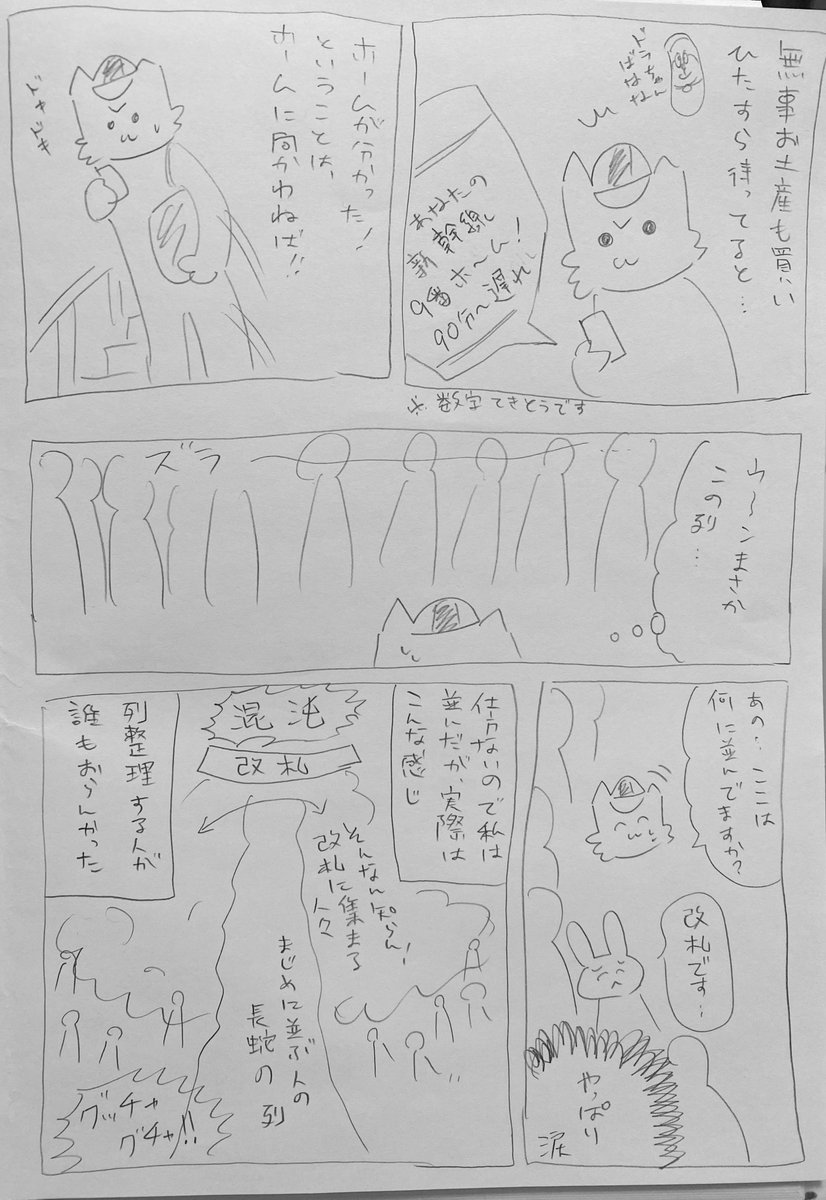 無事お土産も買い
ひたすら待ってると…
ドラちゃん
ばなな
あなたの
新幹線
9番ホーム!
90分〜遅れ
※数字てきとうです
ホームが分かった!
ということは、
ホームに向かわねば!!
ドキドキ
ウ〜ンまさか
この列…
ズラ
あの…ここは
何に並んでますか?
改札です…
やっぱり
涙
仕方ないので私は
並んだが、実際は
こんな感じ
混沌
改札
そんなん知らん!
改札に集まる
人々
まじめに並ぶ人の
長蛇の列
列整理する人が
誰もおらんかった
グッチャ
グチャ!!